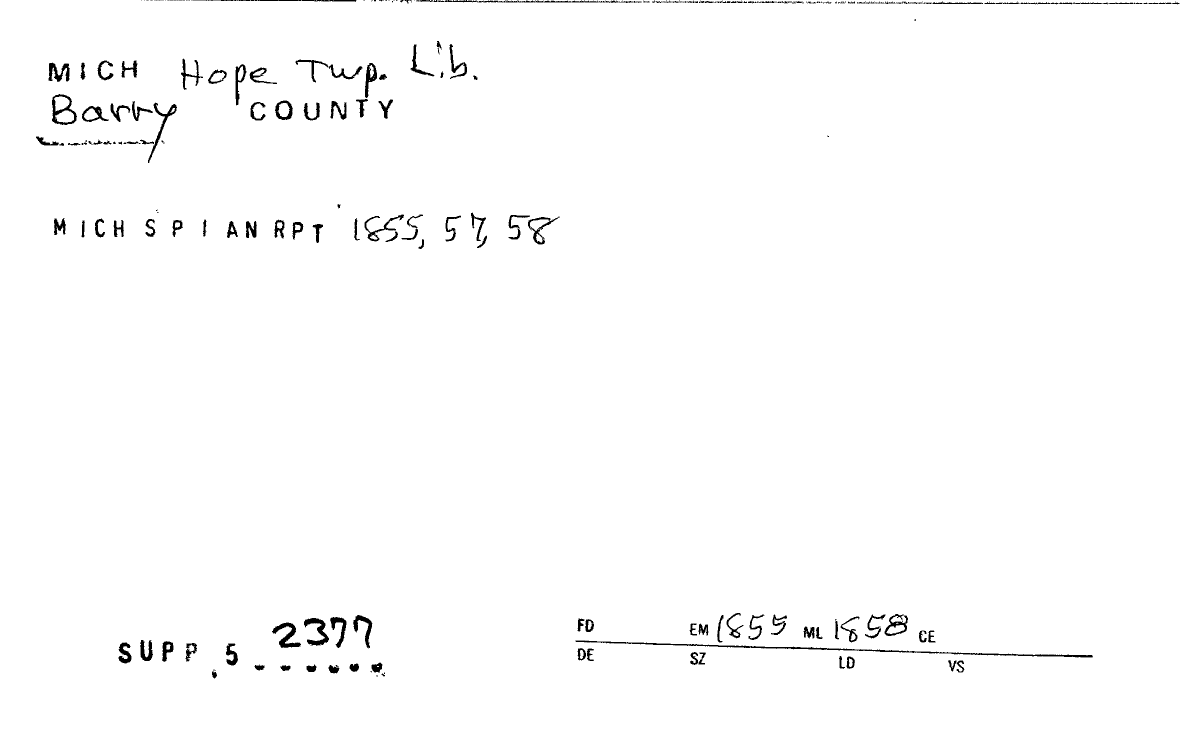 MICH Hope Twp. Lib.
Barry COUNTY
MICH S P I AN RPT 1855, 57, 58
SUPP. 5 2377
FD EM 1855 ML 1858 CE
DE SZ LD VS